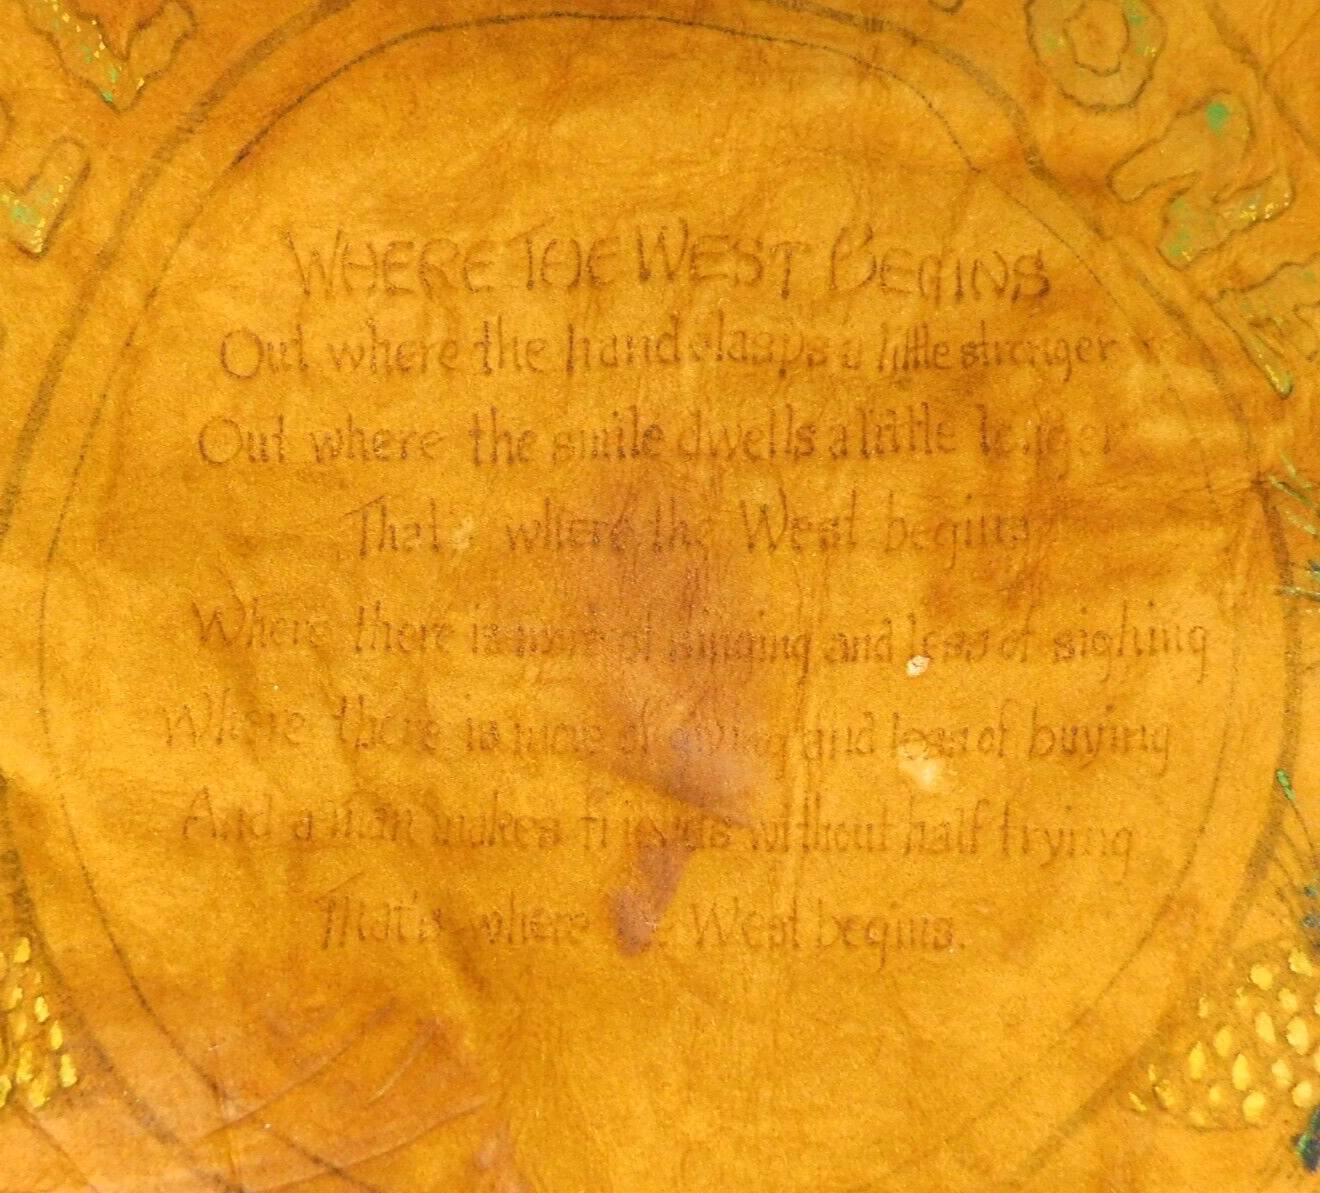 WHERE THE WEST BEGINS
Out where the hand clasps a little stronger
Out where the smile dwells a little longer
That's where the West begins
Where there is more of singing and less of sighing
Where there is more of giving and less of buying
And a man makes friends without half trying
That's where the West begins.